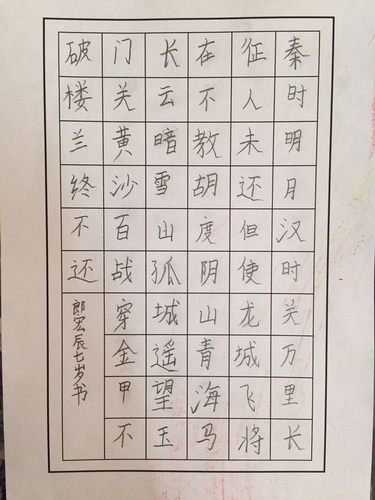 秦时明月汉时关万里长
征人未还但使龙城飞将
在不教胡度阴山青海马
长云暗雪山孤城遥望玉
门关黄沙百战穿金甲不
破楼兰终不还
郎宏辰七岁书